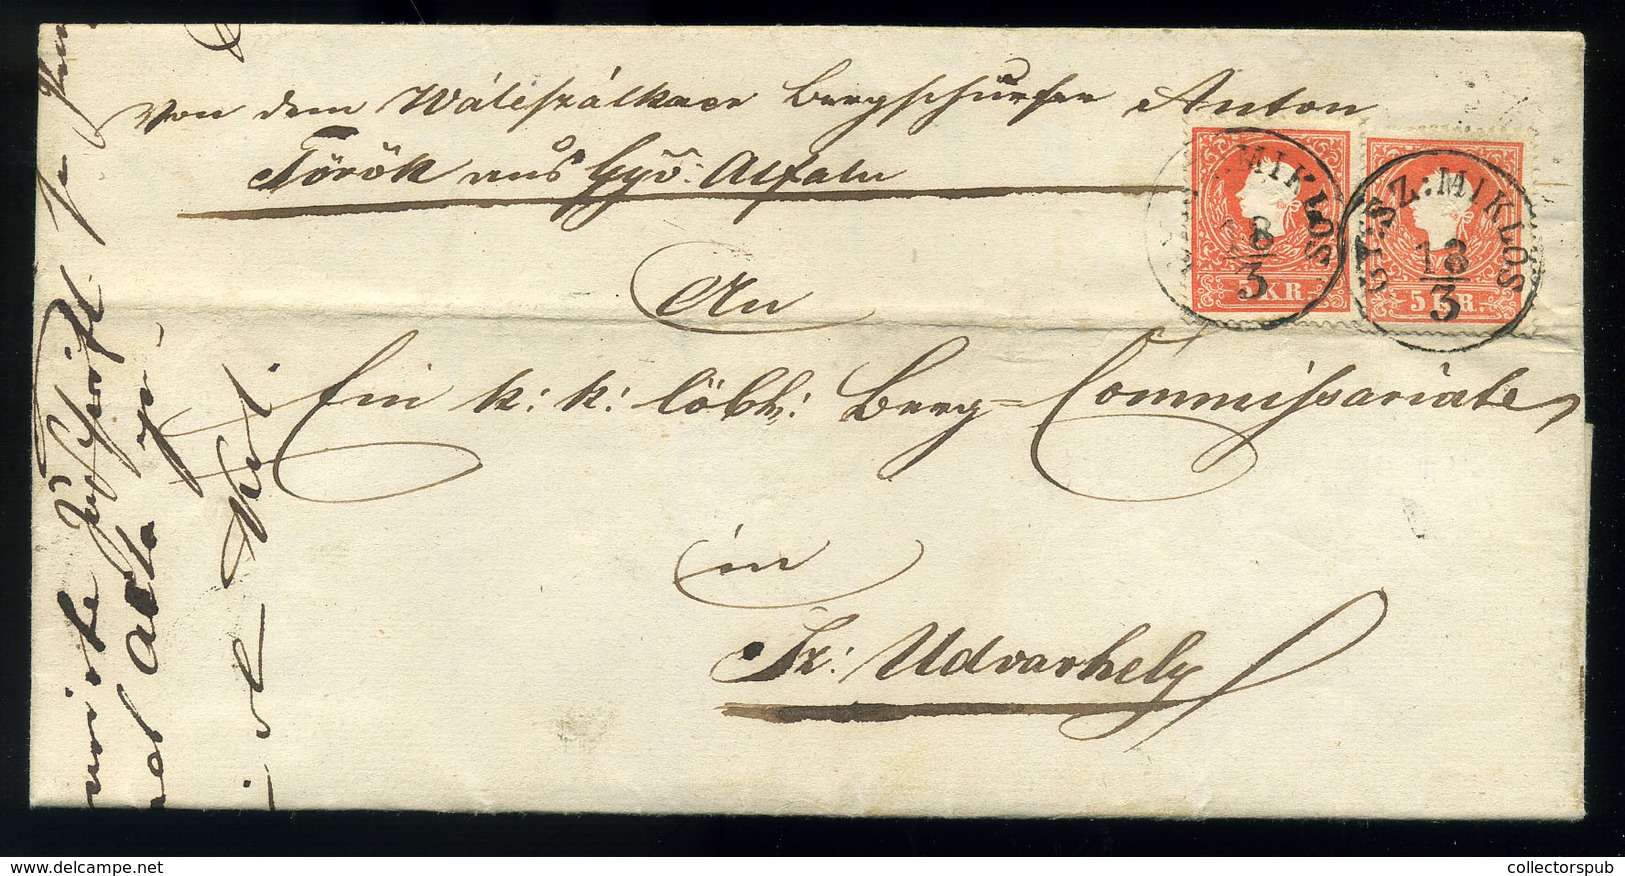 Von dem Wáleszálkaer Bergschürfer Anton
Török aus Gyó: Alfalu
An
Ein k: k: löbl: Berg-Commissariate,
in
Sz: Udvarhely
MIKLOS
18
3
5 KR.
GY: SZ: MIKLOS
18
3
5 KR.
Zuschrift
collectorspub